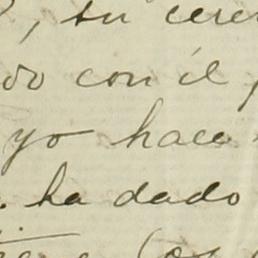 , su cere
do con él
yo hace
. ha dado